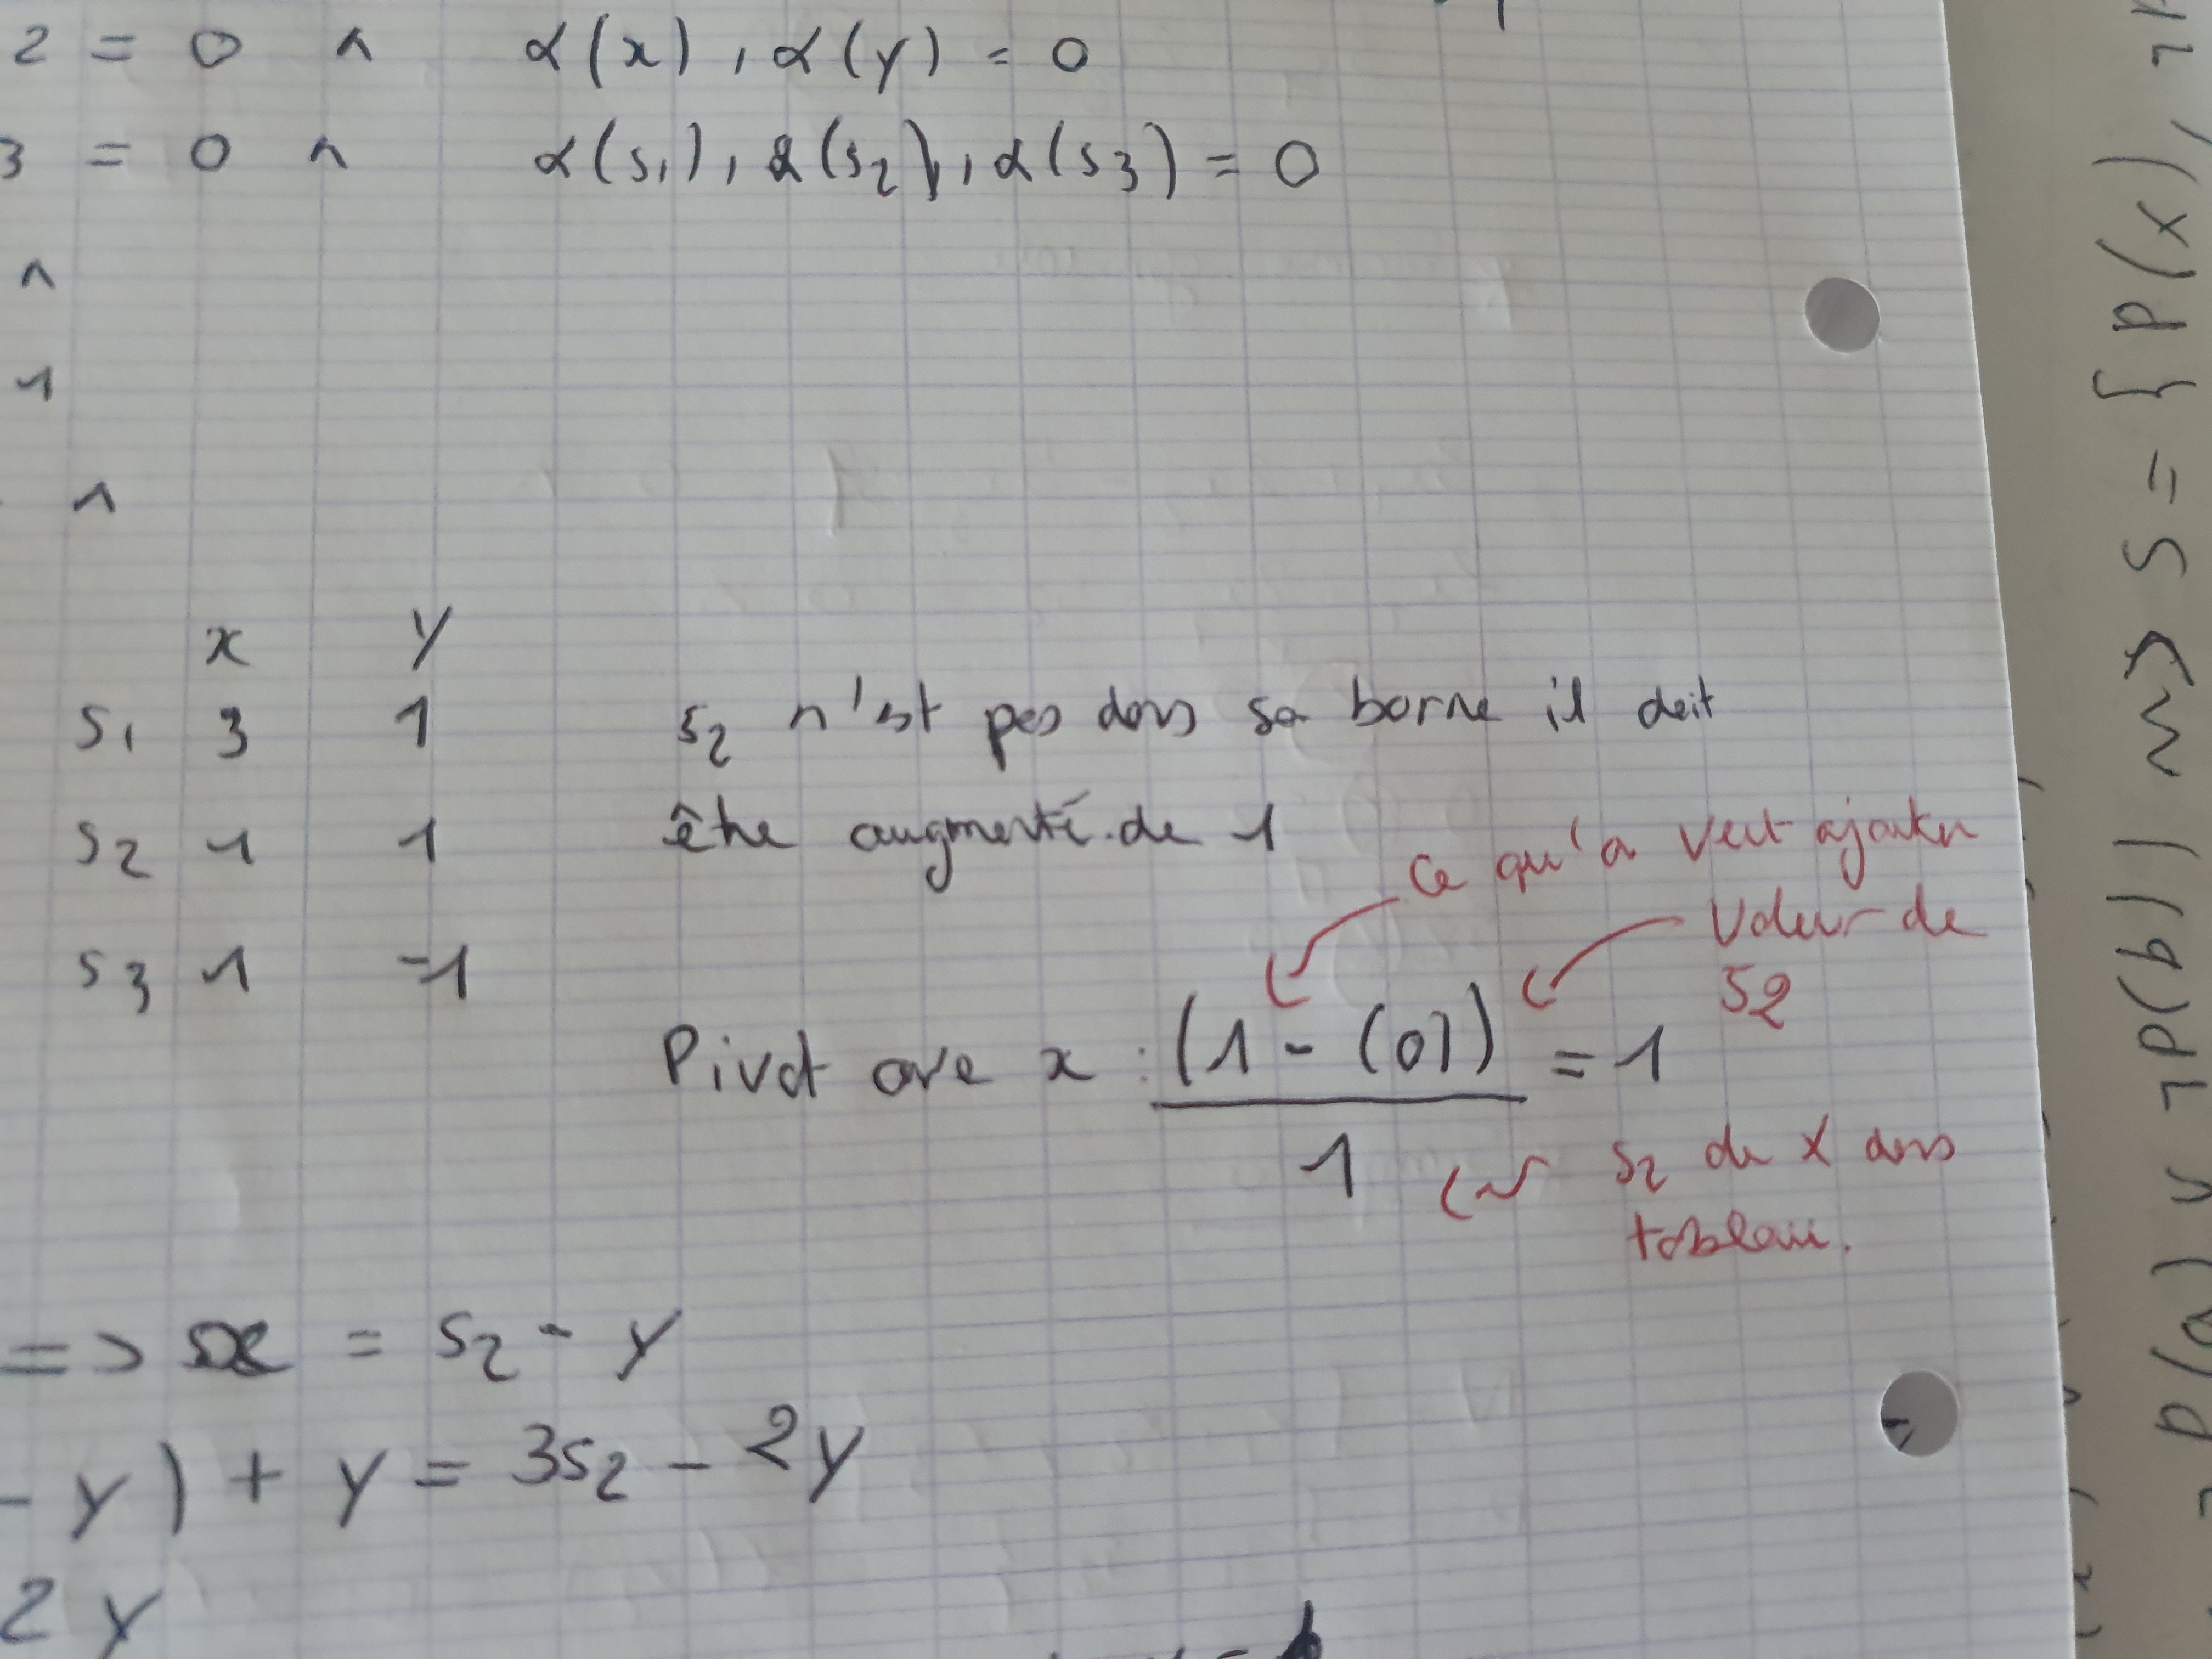 2 = 0 ∧ α(x), α(y) = 0
3 = 0 ∧ α(s1), α(s2), α(s3) = 0
∧
∧
∧
x y
s1 3 1 s2 n'est pas dans sa borne il doit
s2 1 1 être augmenté de 1
ce qu'on veut ajouter
s3 1 -1
valeur de
s2
Pivot avec x : (1 - (0)) = 1
1
s2 de x dans
tableau.
=> x = s2 - y
- y) + y = 3s2 - 2y
2y